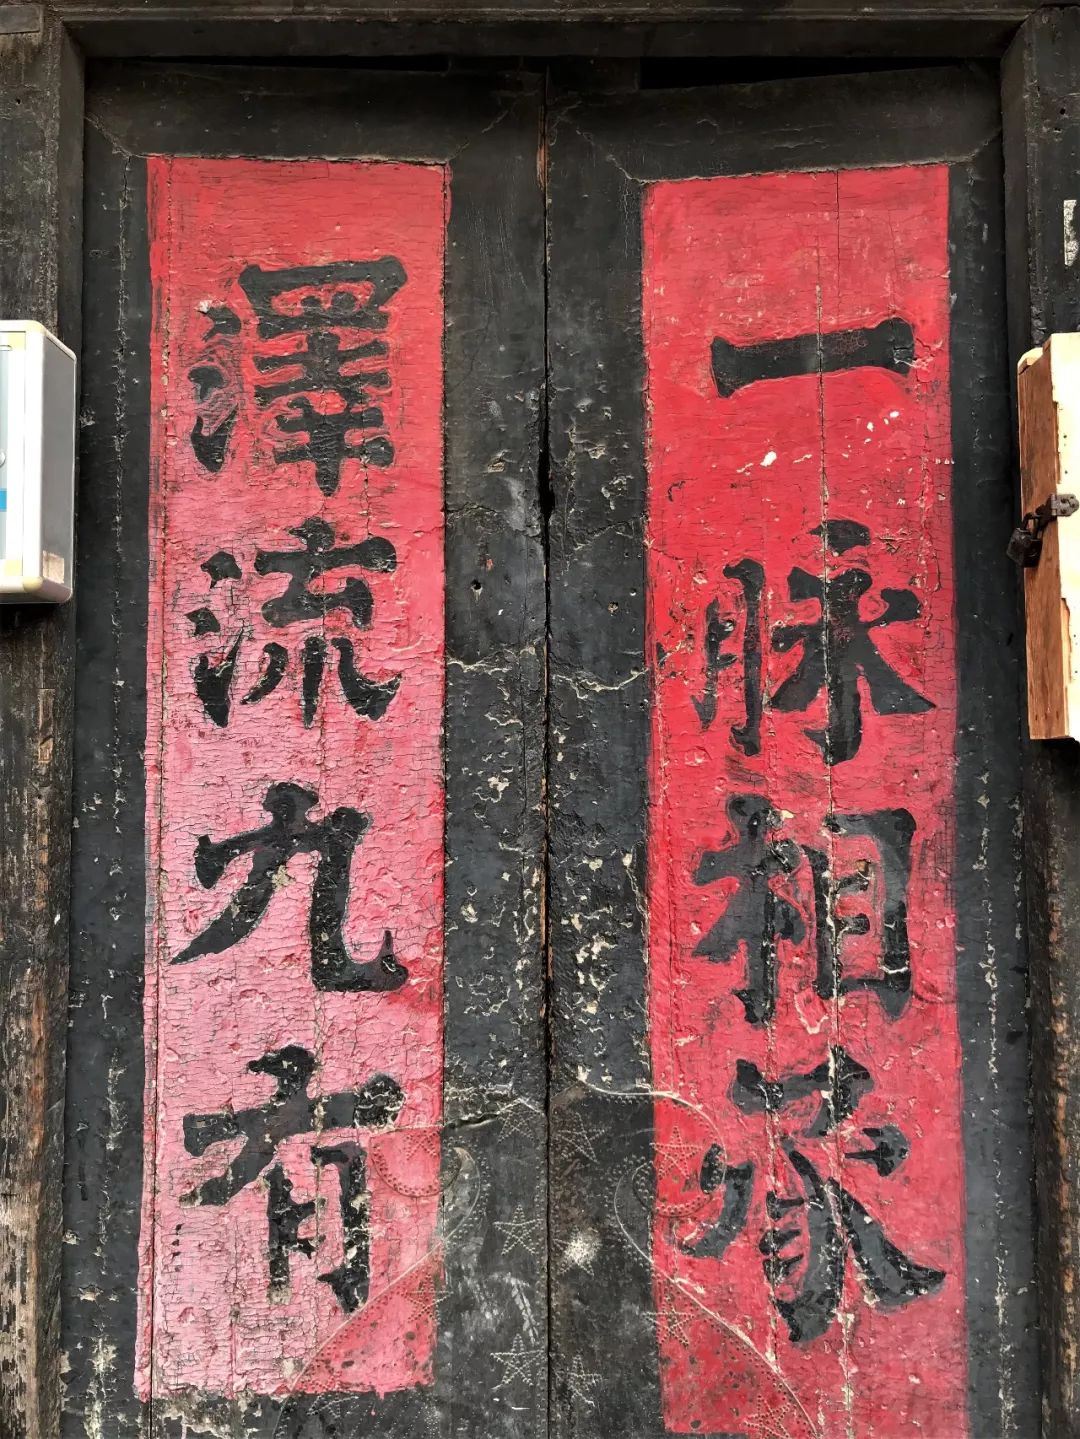 一脉相承
澤流九有